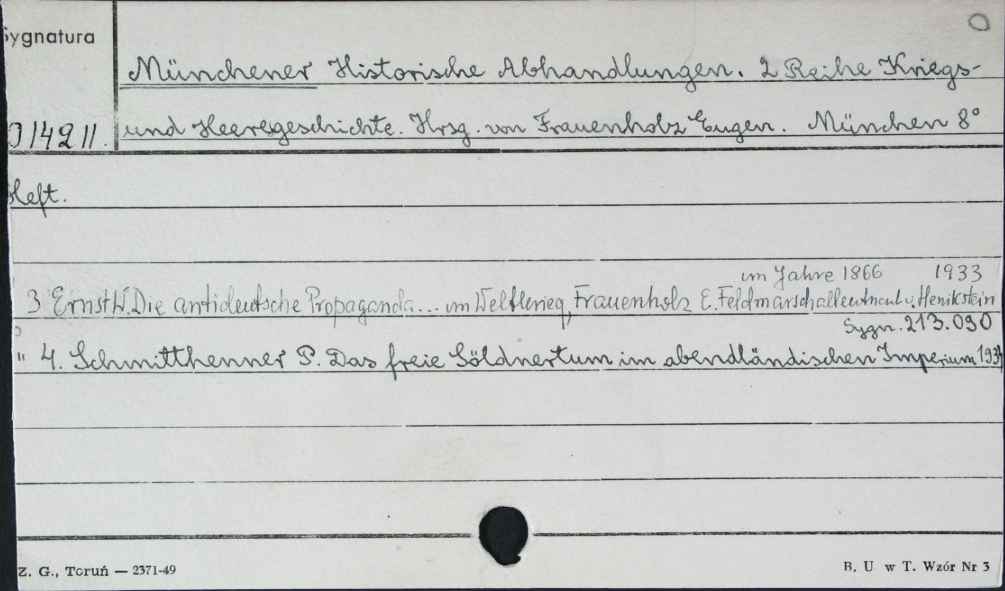 Sygnatura
Münchener Historische Abhandlungen. 2 Reihe Kriegs-
und Heeresgeschichte. Hrsg. von Frauenholz Eugen. München 8°
Heft.
im Jahre 1866 1933
3 Ernst W. Die antideutsche Propaganda... im Weltkrieg, Frauenholz E. Feldmarschalleutnant v. Henikstein
Sygn. 213.090
" 4. Schmitthenner P. Das freie Söldnertum im abendländischen Imperium
Z. G., Toruń — 2371-49
B. U w T. Wzór Nr 3